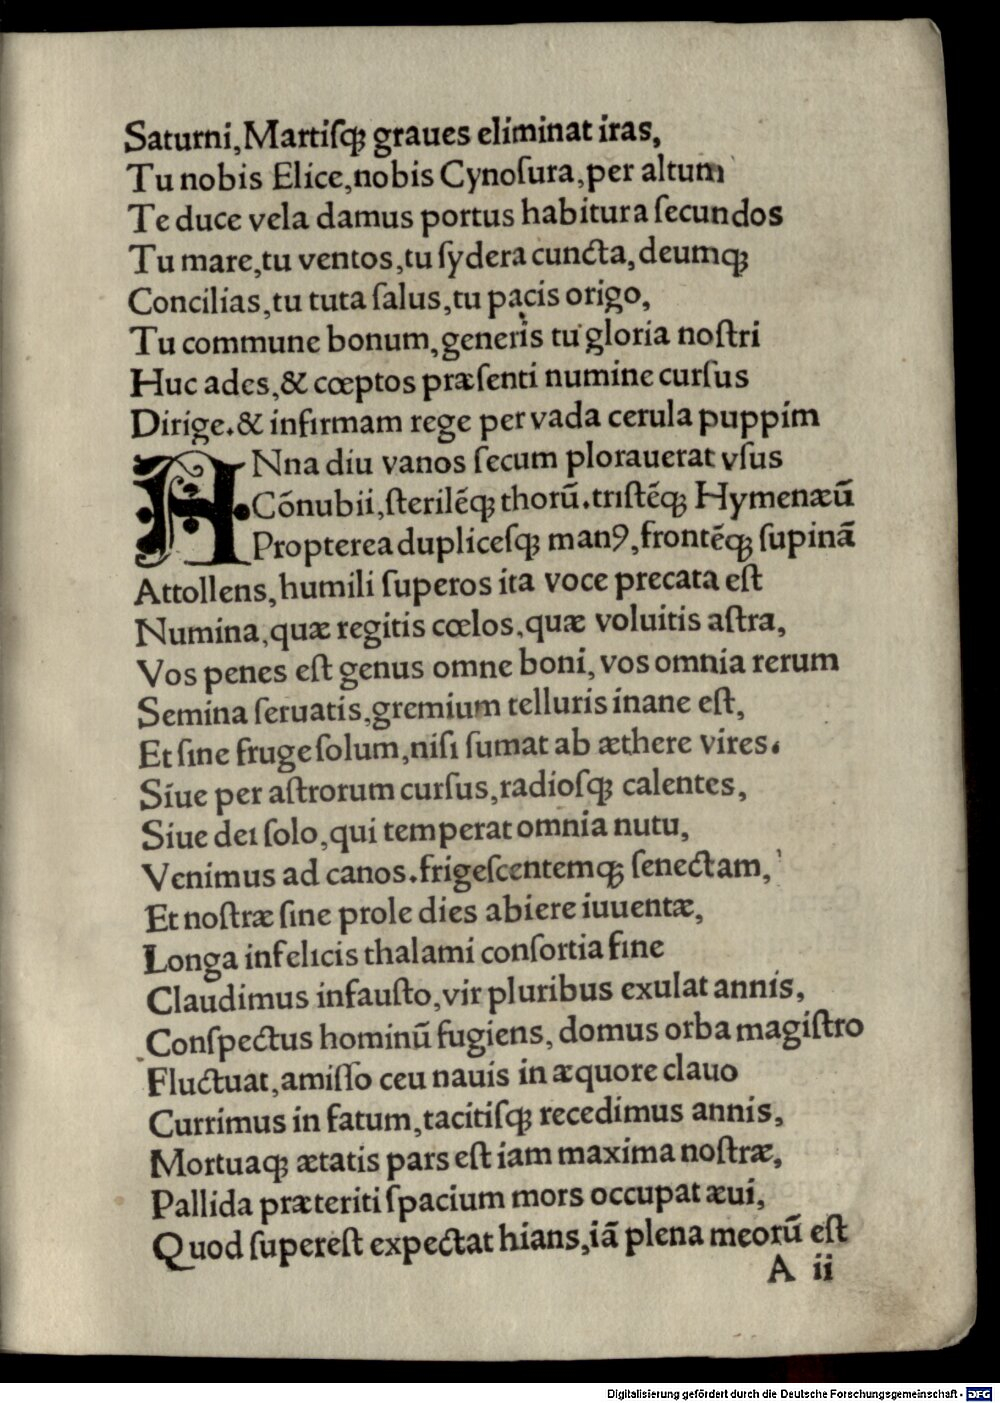 Saturni,Martiſqꝫ graues eliminat iras,
Tu nobis Elice,nobis Cynoſura,per altum
Te duce vela damus portus habitura ſecundos
Tu mare,tu ventos,tu ſydera cuncta,deumqꝫ
Concilias,tu tuta ſalus,tu pacis origo,
Tu commune bonum,generis tu gloria noſtri
Huc ades,& cœptos præſenti numine curſus
Dirige.& infirmam rege per vada cerula puppim
ANna diu vanos ſecum plorauerat vſus
Cōnubii,ſterilēqꝫ thorū.triſtēqꝫ Hymenæū
Propterea dupliceſqꝫ manꝰ,frontēqꝫ ſupinā
Attollens,humili ſuperos ita voce precata eſt
Numina,quæ regitis cœlos,quæ voluitis aſtra,
Vos penes eſt genus omne boni,vos omnia rerum
Semina ſeruatis,gremium telluris inane eſt,
Et ſine fruge ſolum,niſi ſumat ab æthere vires.
Siue per aſtrorum curſus,radioſqꝫ calentes,
Siue dei ſolo,qui temperat omnia nutu,
Venimus ad canos.frigeſcentemqꝫ ſenectam,
Et noſtræ ſine prole dies abiere iuuentæ,
Longa infelicis thalami conſortia fine
Claudimus infauſto,vir pluribus exulat annis,
Conſpectus hominū fugiens, domus orba magiſtro
Fluctuat,amiſſo ceu nauis in æquore clauo
Currimus in fatum,tacitiſqꝫ recedimus annis,
Mortuaqꝫ ætatis pars eſt iam maxima noſtræ,
Pallida præteriti ſpacium mors occupat æui,
Quod ſupereſt expectat hians,iā plena meorū eſt
A ii
Digitalisierung gefördert durch die Deutsche Forschungsgemeinschaft - DFG